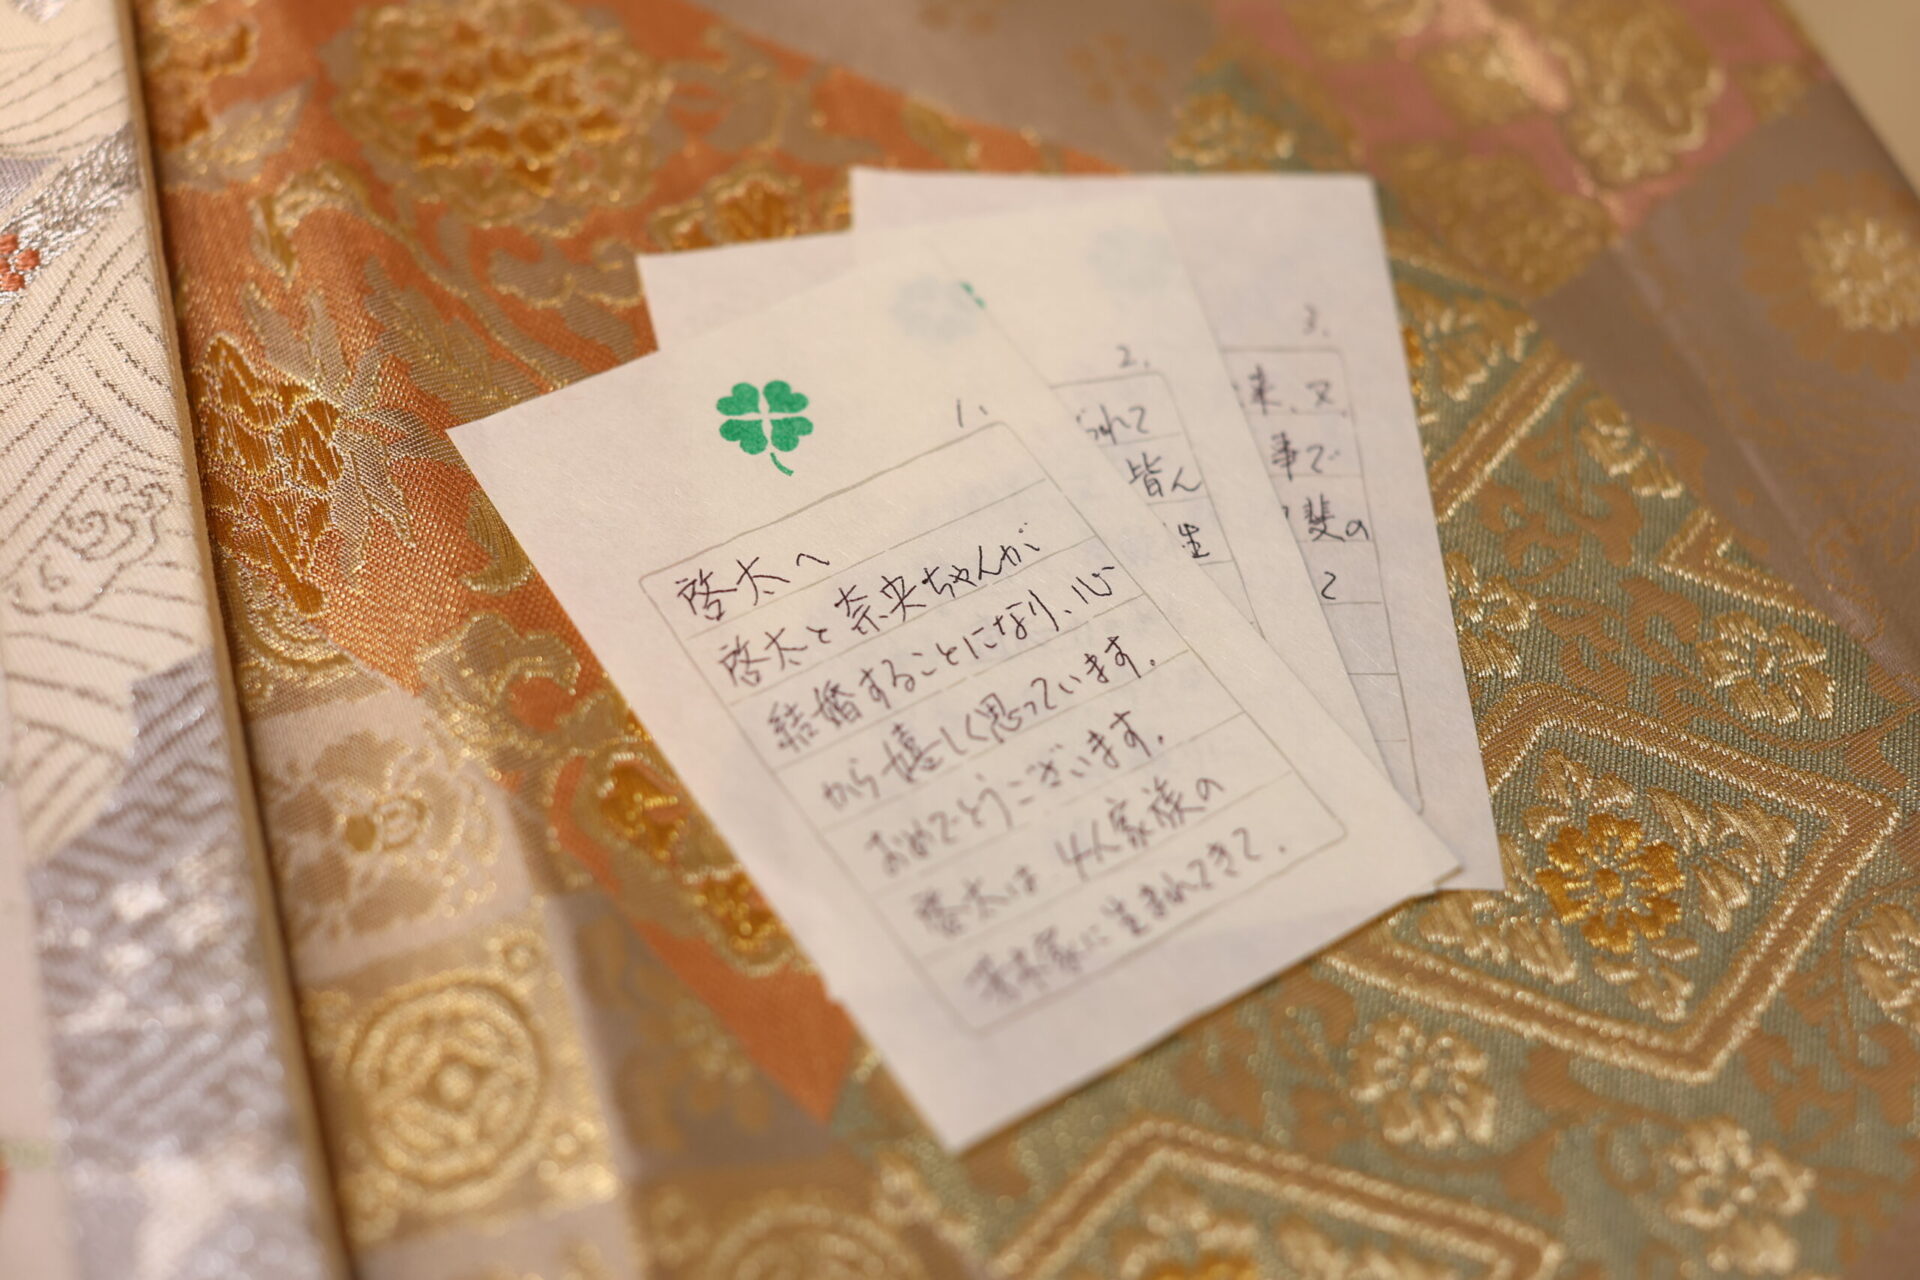 1.
啓太へ
啓太と奈央ちゃんが
結婚することになり、心
から嬉しく思っています。
おめでとうございます。
啓太は4人家族の
家に生まれてきて、
2.
られて
皆ん
生
3.
来、又、
事で
斐の
と